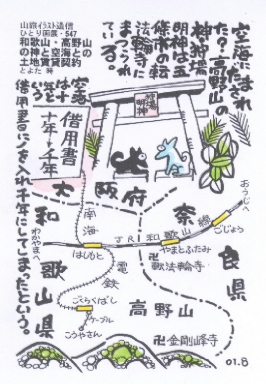 山旅イラスト通信
ひとり画展・547
和歌山・高野山
の神と空海との
土地賃貸契約
とよた 時
空海にまれ
た？高野山の
神 狩場
明神は五
條市の転
法輪寺に
まつられ
ている。
狩場
明神
借用書
十年→千年
借用書に丿を入れ千年にしてしまったという。
大阪府
奈良県
和歌山県
南海電鉄
JR和歌山線
おうじへ
ごじょう
やまとふたみ
卍転法輪寺
はしもと
わかやまへ
ごくらくばし
ケーブル
こうやさん
高野山
卍金剛峰寺
01.8